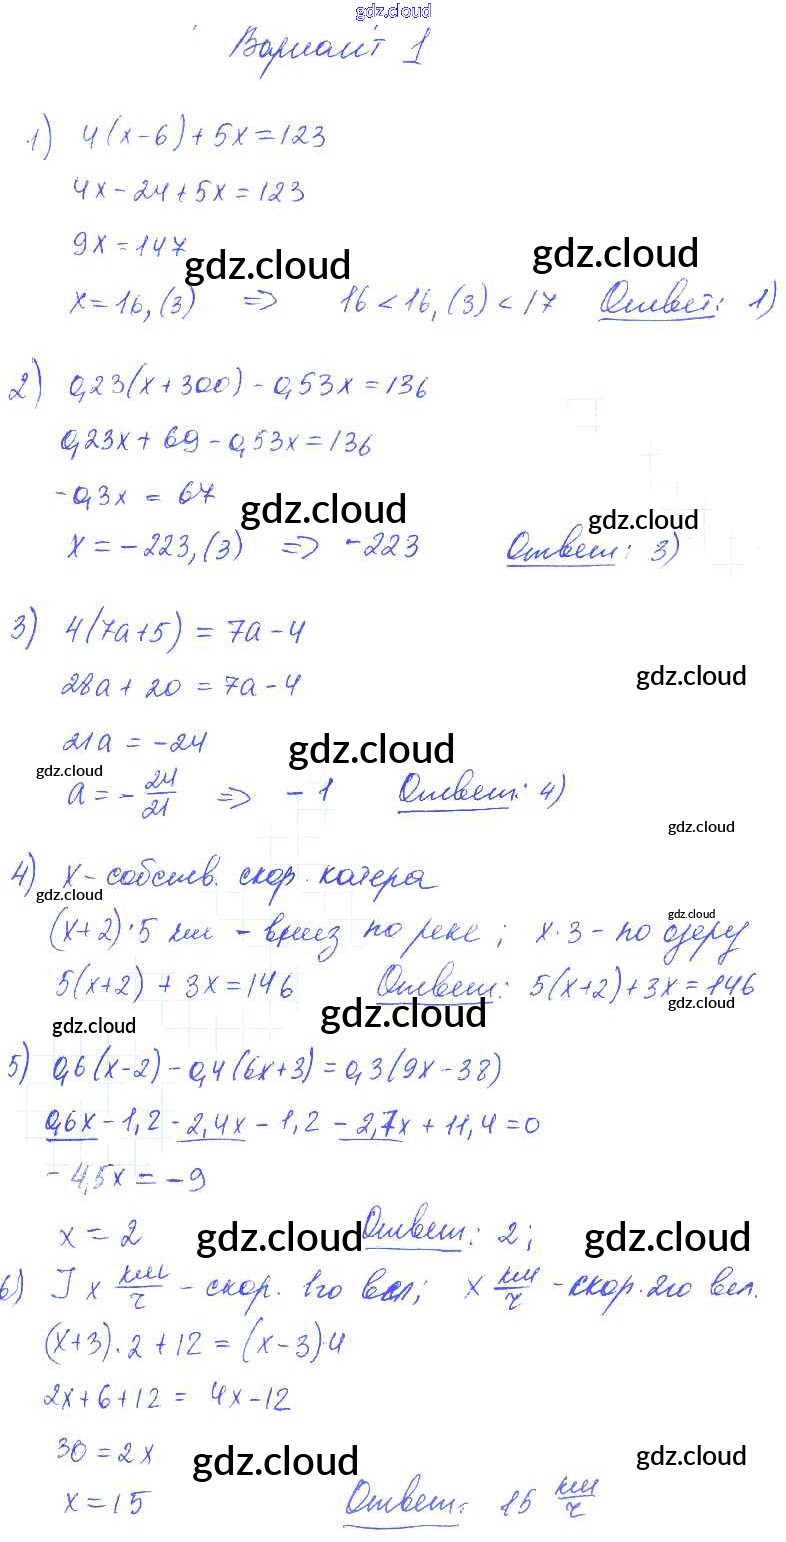 gdz.cloud
Вариант 1
1) 4(x-6)+5x=123
4x-24+5x=123
9x=147
gdz.cloud gdz.cloud
x=16,(3) => 16<16,(3)<17 Ответ: 1)
2) 0,23(x+300)-0,53x=136
0,23x+69-0,53x=136
-0,3x = 67
gdz.cloud gdz.cloud
x=-223,(3) => -223 Ответ: 3)
3) 4(7a+5) = 7a-4
28a+20 = 7a-4
gdz.cloud
21a = -24
gdz.cloud gdz.cloud
a = -24/21 => -1 Ответ: 4)
gdz.cloud
4) x - собств. скор. катера
gdz.cloud
(x+2)·5 км - вниз по реке; x·3 - по озеру
gdz.cloud
5(x+2) + 3x=146 Ответ: 5(x+2)+3x=146
gdz.cloud gdz.cloud gdz.cloud
5) 0,6(x-2)-0,4(6x+3)=0,3(9x-38)
0,6x-1,2-2,4x-1,2-2,7x+11,4=0
-4,5x=-9
x=2 Ответ: 2;
gdz.cloud gdz.cloud
6) x км/ч - скор. 1го вел; x км/ч - скор. 2го вел.
(x+3)·2+12=(x-3)·4
2x+6+12= 4x-12
30=2x
gdz.cloud gdz.cloud
x=15 Ответ: 15 км/ч